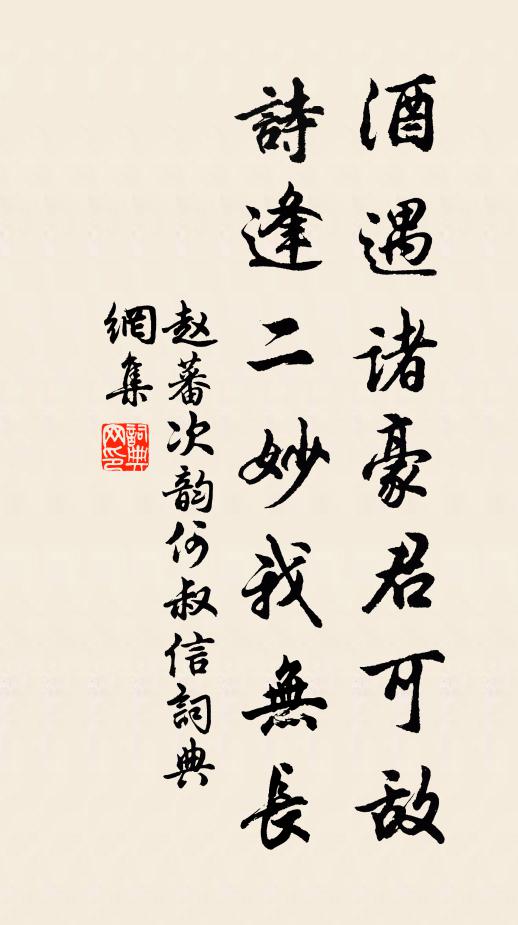 酒遇诸豪君可敌
詩逢二妙我無長
赵蕃次韵何叔信詞典
網集
詞典網印